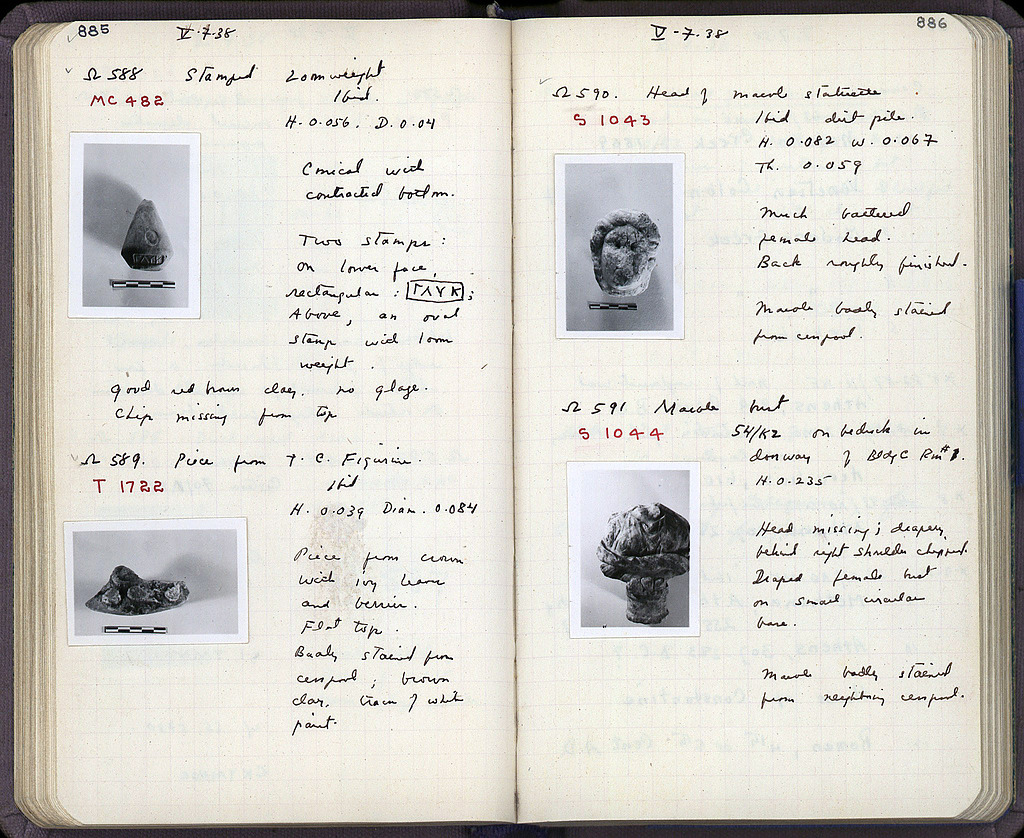 885
V·7·38
Ω 588 Stamped Loomweight
MC 482
Ibid.
H. 0.056. D. 0.04
Conical with
contracted bottom.
Two stamps:
on lower face,
rectangular :
Above, an oval
stamp with loom
weight.
Good red brown clay. no glaze.
Chip missing from top
Ω 589. Piece from T. C. Figurine.
T 1722
Ibid
H. 0.039 Diam. 0.084
Piece from crown
with ivy leaves
and berries.
Flat top.
Badly stained from
cesspool; brown
clay, traces of white
paint.
886
V-7.38
Ω 590. Head of marble statuette
S 1043
Ibid dirt pile.
H. 0.082 W. 0.067
Th. 0.059
Much battered
female head.
Back roughly finished.
Marble badly stained
from cesspool.
Ω 591 Marble bust
S 1044
54/ΚΖ on bedrock in
doorway of Bldg C Rm #1.
H. 0.235
Head missing; drapery
behind right shoulder chipped.
Draped female bust
on small circular
base.
Marble badly stained
from neighboring cesspool.